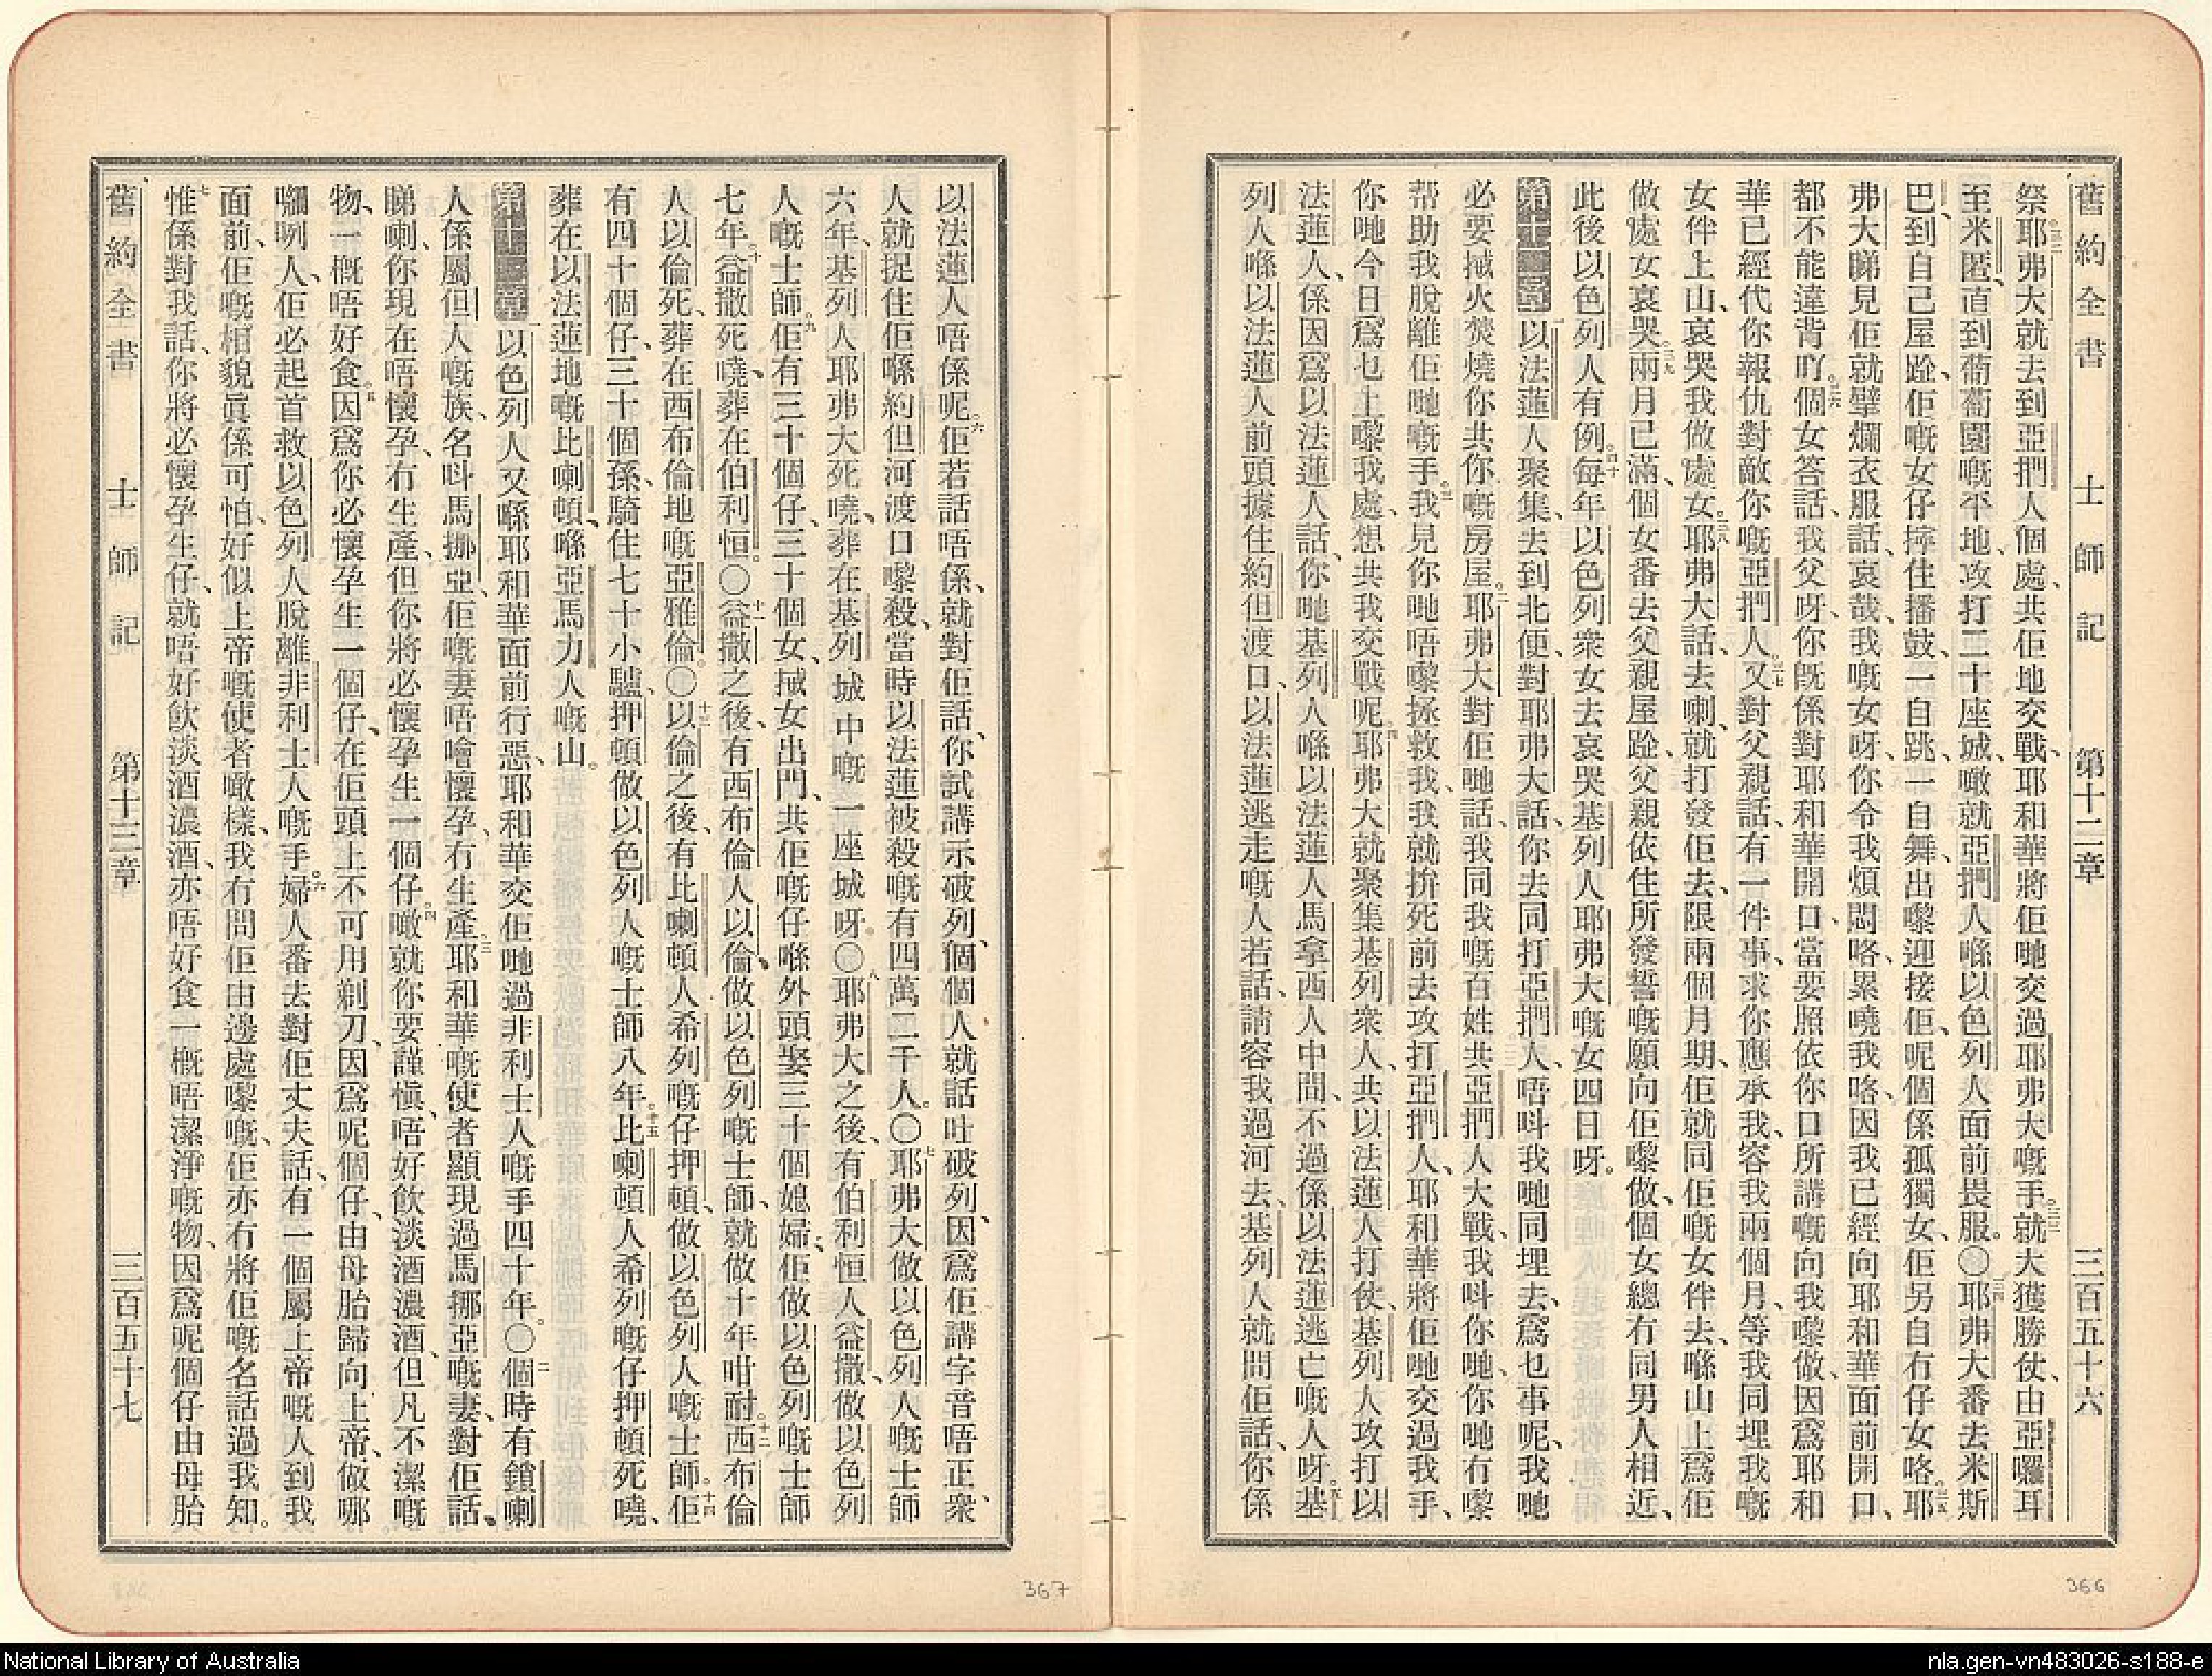 舊約全書 士師記 第十二章 三百五十六
祭耶弗大就去到亞捫人個處、共佢地交戰、耶和華將佢哋交過耶弗大嘅手。三三就大獲勝仗、由亞囉耳
至米匿、直到葡萄園嘅平地、攻打二十座城、噉就亞捫人喺以色列人面前畏服。〇三四耶弗大番去米斯
巴、到自己屋跲、佢嘅女仔擰住播鼓、一自跳、一自舞、出嚟迎接佢、呢個係孤獨女、佢另自冇仔女咯。三五耶
弗大睇見佢就擘爛衣服話、哀哉、我嘅女呀、你令我煩悶咯、累嘵我咯、因我已經向耶和華面前開口、
都不能違背吖。三六個女答話、我父呀、你旣係對耶和華開口、當要照依你口所講嘅向我嚟做、因爲耶和
華已經代你報仇對敵你嘅亞捫人、三七又對父親話、有一件事、求你應承我、容我兩個月、等我同埋我嘅
女伴上山、哀哭我做處女。三八耶弗大話、去喇、就打發佢去、限兩個月期、佢就同佢嘅女伴去、喺山上爲佢
做處女哀哭。三九兩月已滿、個女番去父親屋跲、父親依住所發誓嘅願向佢嚟做、個女總冇同男人相近、
此後以色列人有例、四十每年以色列衆女去哀哭基列人耶弗大嘅女四日呀。
第十二章 一以法蓮人聚集、去到北便、對耶弗大話、你去同打亞捫人、唔呌我哋同埋去、爲乜事呢、我哋
必要搣火焚燒你共你嘅房屋。二耶弗大對佢哋話、我同我嘅百姓共亞捫人大戰、我呌你哋、你哋冇嚟
帮助我脫離佢哋嘅手。三我見你哋唔嚟拯救我、我就拚死前去攻打亞捫人、耶和華將佢哋交過我手、
你哋今日爲乜上嚟我處、想共我交戰呢。四耶弗大就聚集基列衆人、共以法蓮人打仗、基列人攻打以
法蓮人、係因爲以法蓮人話、你哋基列人喺以法蓮人馬拿西人中間、不過係以法蓮逃亡嘅人呀。五基
列人喺以法蓮人前頭據住約但渡口、以法蓮逃走嘅人若話、請容我過河去、基列人就問佢話、你係
以法蓮人唔係呢。六佢若話唔係、就對佢話、你試講示破列、個個人就話吐破列、因爲佢講字音唔正、衆
人就捉住佢喺約但河渡口嚟殺、當時以法蓮被殺嘅有四萬二千人。〇七耶弗大做以色列人嘅士師
六年、基列人耶弗大死嘵、葬在基列城中嘅一座城呀。〇八耶弗大之後、有伯利恒人益撒、做以色列
人嘅士師。九佢有三十個仔、三十個女、搣女出門、共佢嘅仔喺外頭娶三十個媳婦、佢做以色列嘅士師
七年。十益撒死嘵、葬在伯利恒。〇十一益撒之後、有西布倫人以倫、做以色列嘅士師、就做十年咁耐。十二西布倫
人以倫死、葬在西布倫地嘅亞雅倫。〇十三以倫之後、有比喇頓人希列嘅仔押頓、做以色列人嘅士師。十四佢
有四十個仔、三十個孫、騎住七十小驢、押頓做以色列人嘅士師八年。十五比喇頓人希列嘅仔押頓死嘵、
葬在以法蓮地嘅比喇頓、喺亞馬力人嘅山。
第十三章 一以色列人又喺耶和華面前行惡、耶和華交佢哋過非利士人嘅手四十年。〇二個時有鎖喇
人係屬但人嘅族、名呌馬挪亞、佢嘅妻唔噲懷孕、冇生產。三耶和華嘅使者顯現過馬挪亞嘅妻、對佢話、
睇喇、你現在唔懷孕、冇生產、但你將必懷孕生一個仔。四噉就你要謹愼、唔好飲淡酒濃酒、但凡不潔嘅
物、一概唔好食。五因爲你必懷孕生一個仔、在佢頭上不可用剃刀、因爲呢個仔、由母胎歸向上帝、做哪
嚹咧人、佢必起首救以色列人脫離非利士人嘅手。六婦人番去對佢丈夫話、有一個屬上帝嘅人到我
面前、佢嘅相貌眞係可怕、好似上帝嘅使者噉樣、我冇問佢由邊處嚟嘅、佢亦冇將佢嘅名話過我知。
七惟係對我話、你將必懷孕生仔、就唔好飲淡酒濃酒、亦唔好食一概唔潔淨嘅物、因爲呢個仔由母胎
舊約全書 士師記 第十三章 三百五十七
367
366
National Library of Australia
nla.gen-vn483026-s188-e